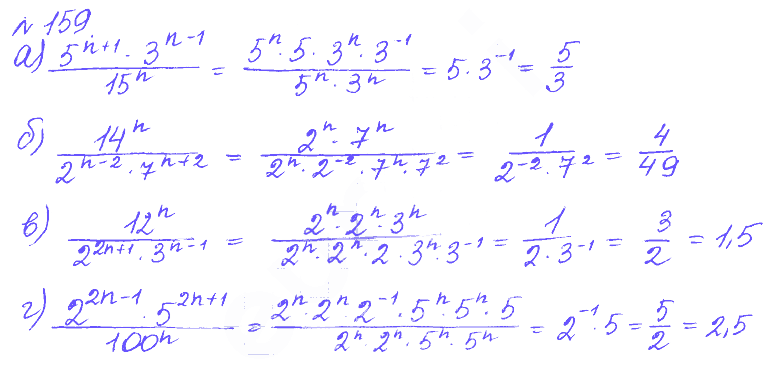 № 159
а) (5^(n+1) · 3^(n-1))/(15^n) = (5^n · 5 · 3^n · 3^(-1))/(5^n · 3^n) = 5 · 3^(-1) = 5/3
б) (14^n)/(2^(n-2) · 7^(n+2)) = (2^n · 7^n)/(2^n · 2^(-2) · 7^n · 7^2) = 1/(2^(-2) · 7^2) = 4/49
в) (12^n)/(2^(2n+1) · 3^(n-1)) = (2^n · 2^n · 3^n)/(2^n · 2^n · 2 · 3^n · 3^(-1)) = 1/(2 · 3^(-1)) = 3/2 = 1,5
г) (2^(2n-1) · 5^(2n+1))/(100^n) = (2^n · 2^n 2^(-1) · 5^n · 5^n · 5)/(2^n · 2^n · 5^n · 5^n) = 2^(-1) · 5 = 5/2 = 2,5